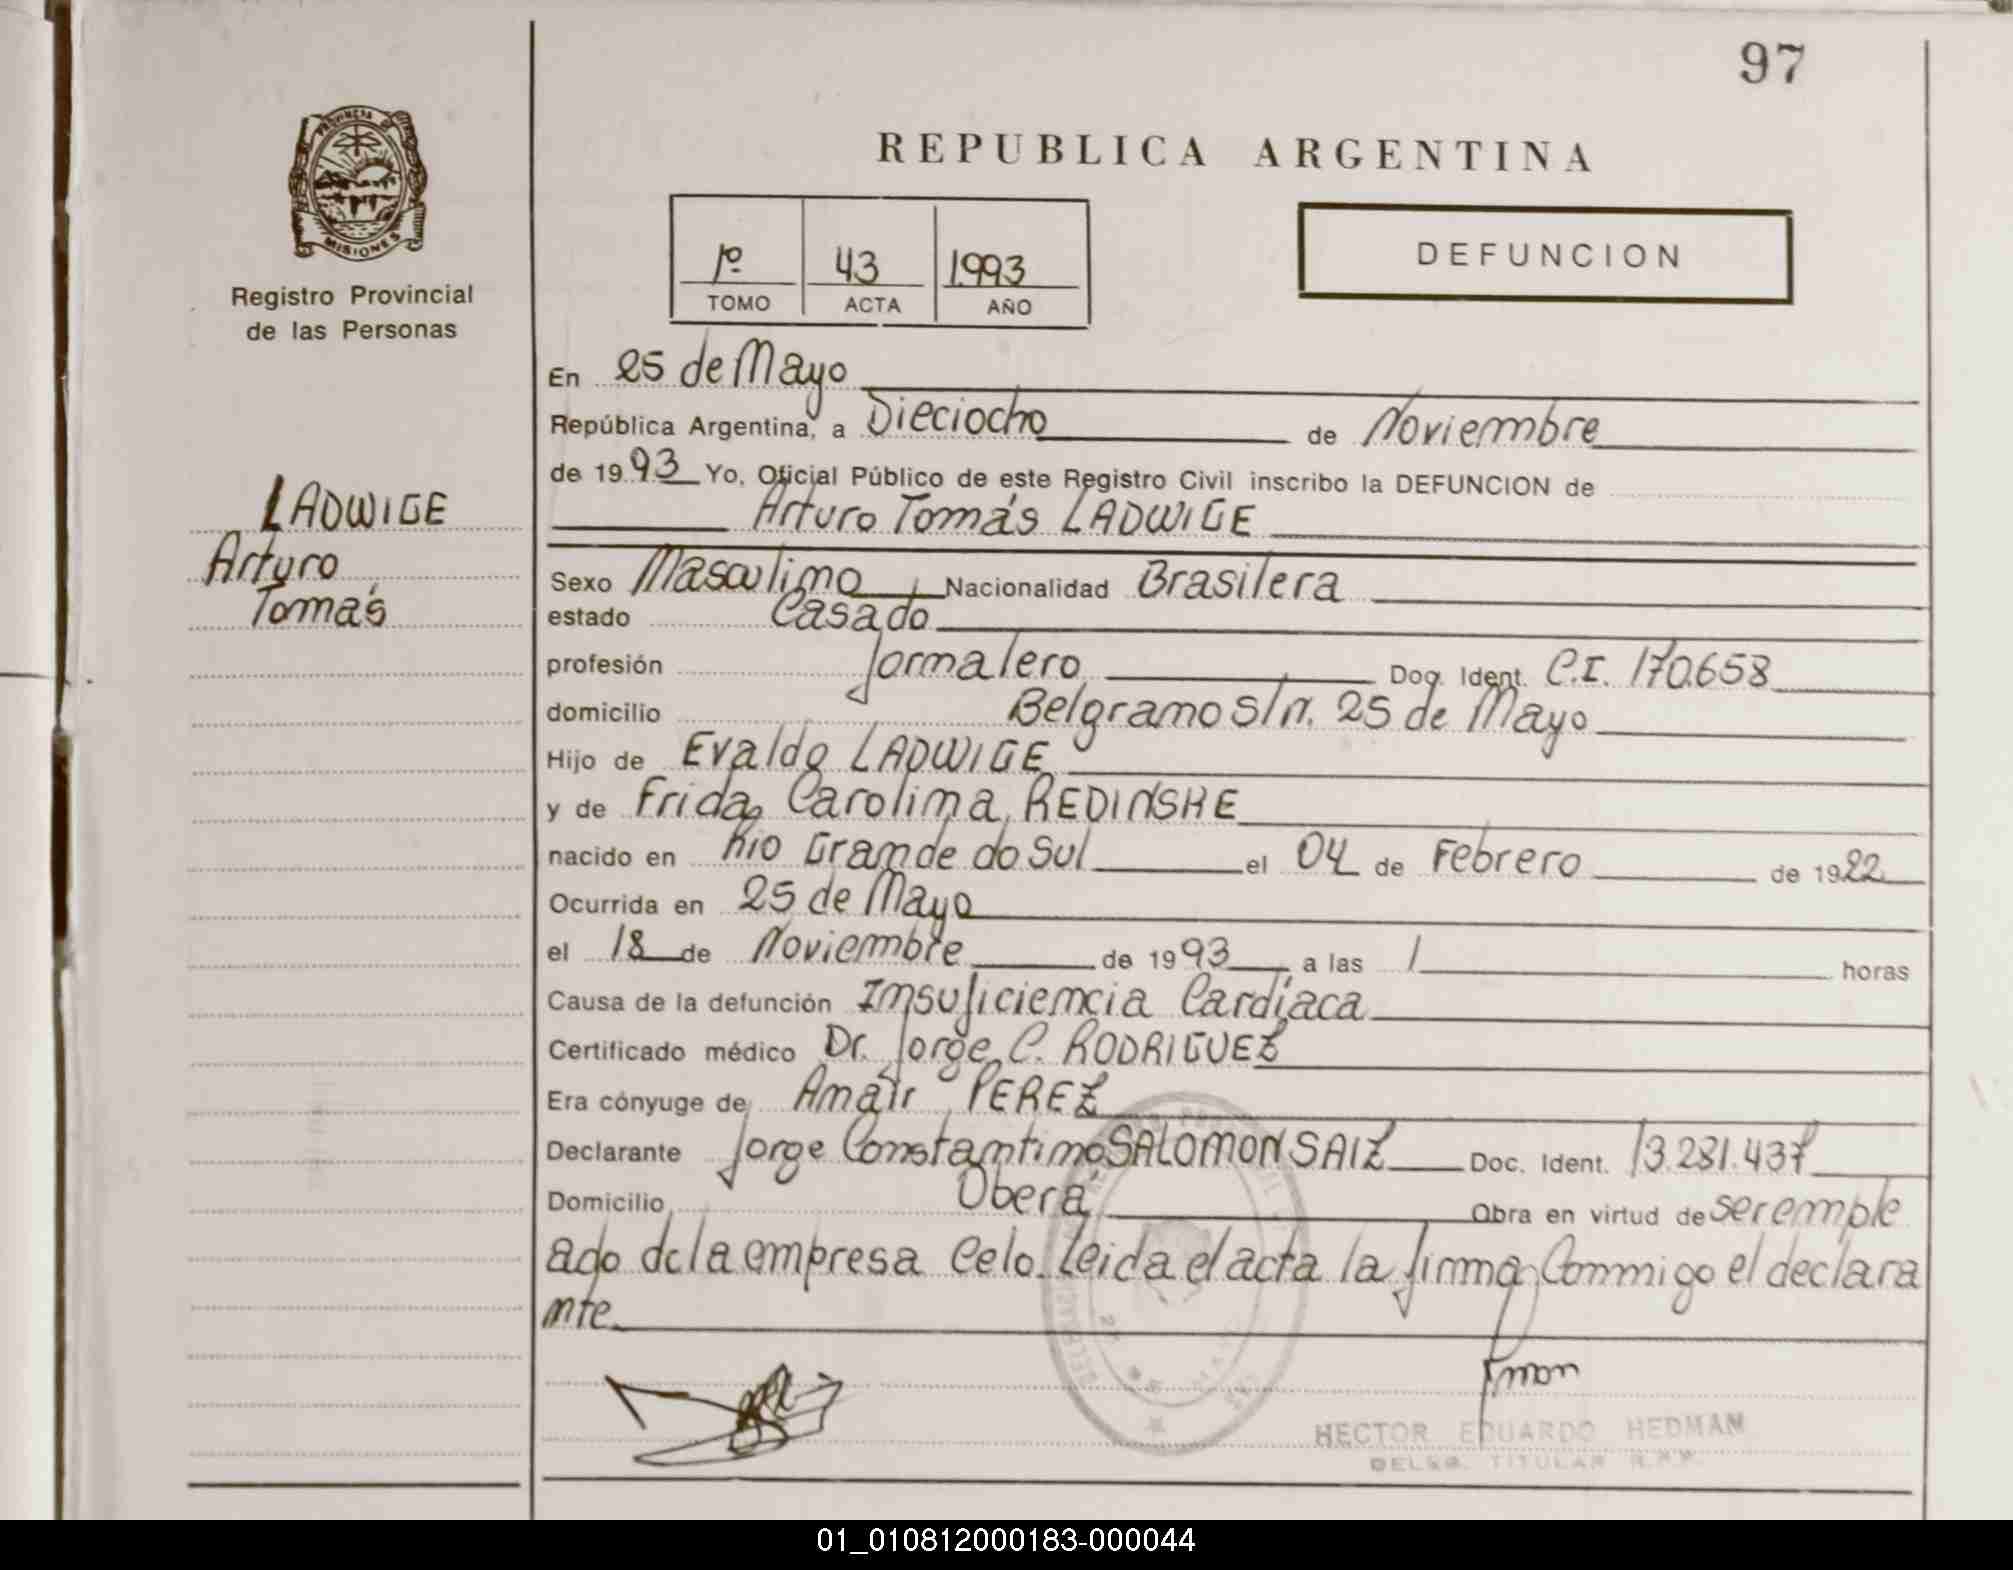 97
PROVINCIA DE
MISIONES
Registro Provincial
de las Personas
REPUBLICA ARGENTINA
1º 43 1.993
TOMO ACTA AÑO
DEFUNCION
LADWIGE
Arturo
Tomás
En 25 de Mayo
República Argentina, a Dieciocho de Noviembre
de 1993 Yo, Oficial Público de este Registro Civil inscribo la DEFUNCION de
Arturo Tomás LADWIGE
Sexo Masculino, Nacionalidad Brasilera
estado Casado
profesión Jornalero Doc. Ident. C.I. 170.658
domicilio Belgrano s/n. 25 de Mayo
Hijo de Evaldo LADWIGE
y de Frida Carolina REDINSKE
nacido en Rio Grande do Sul el 04 de Febrero de 1922
Ocurrida en 25 de Mayo
el 18 de Noviembre de 1993 a las 1 horas
Causa de la defunción Insuficiencia Cardíaca
Certificado médico Dr. Jorge C. RODRIGUEZ
Era cónyuge de Amair PEREZ
Declarante Jorge Constantino SALOMON SAIZ Doc. Ident. 13.281.437
Domicilio Oberá Obra en virtud de ser emple
ado de la empresa Celo. Leida el acta la firma Conmigo el declara
nte
HECTOR EDUARDO HEDMAN
DELEG. TITULAR R.P.P.
01_010812000183-000044